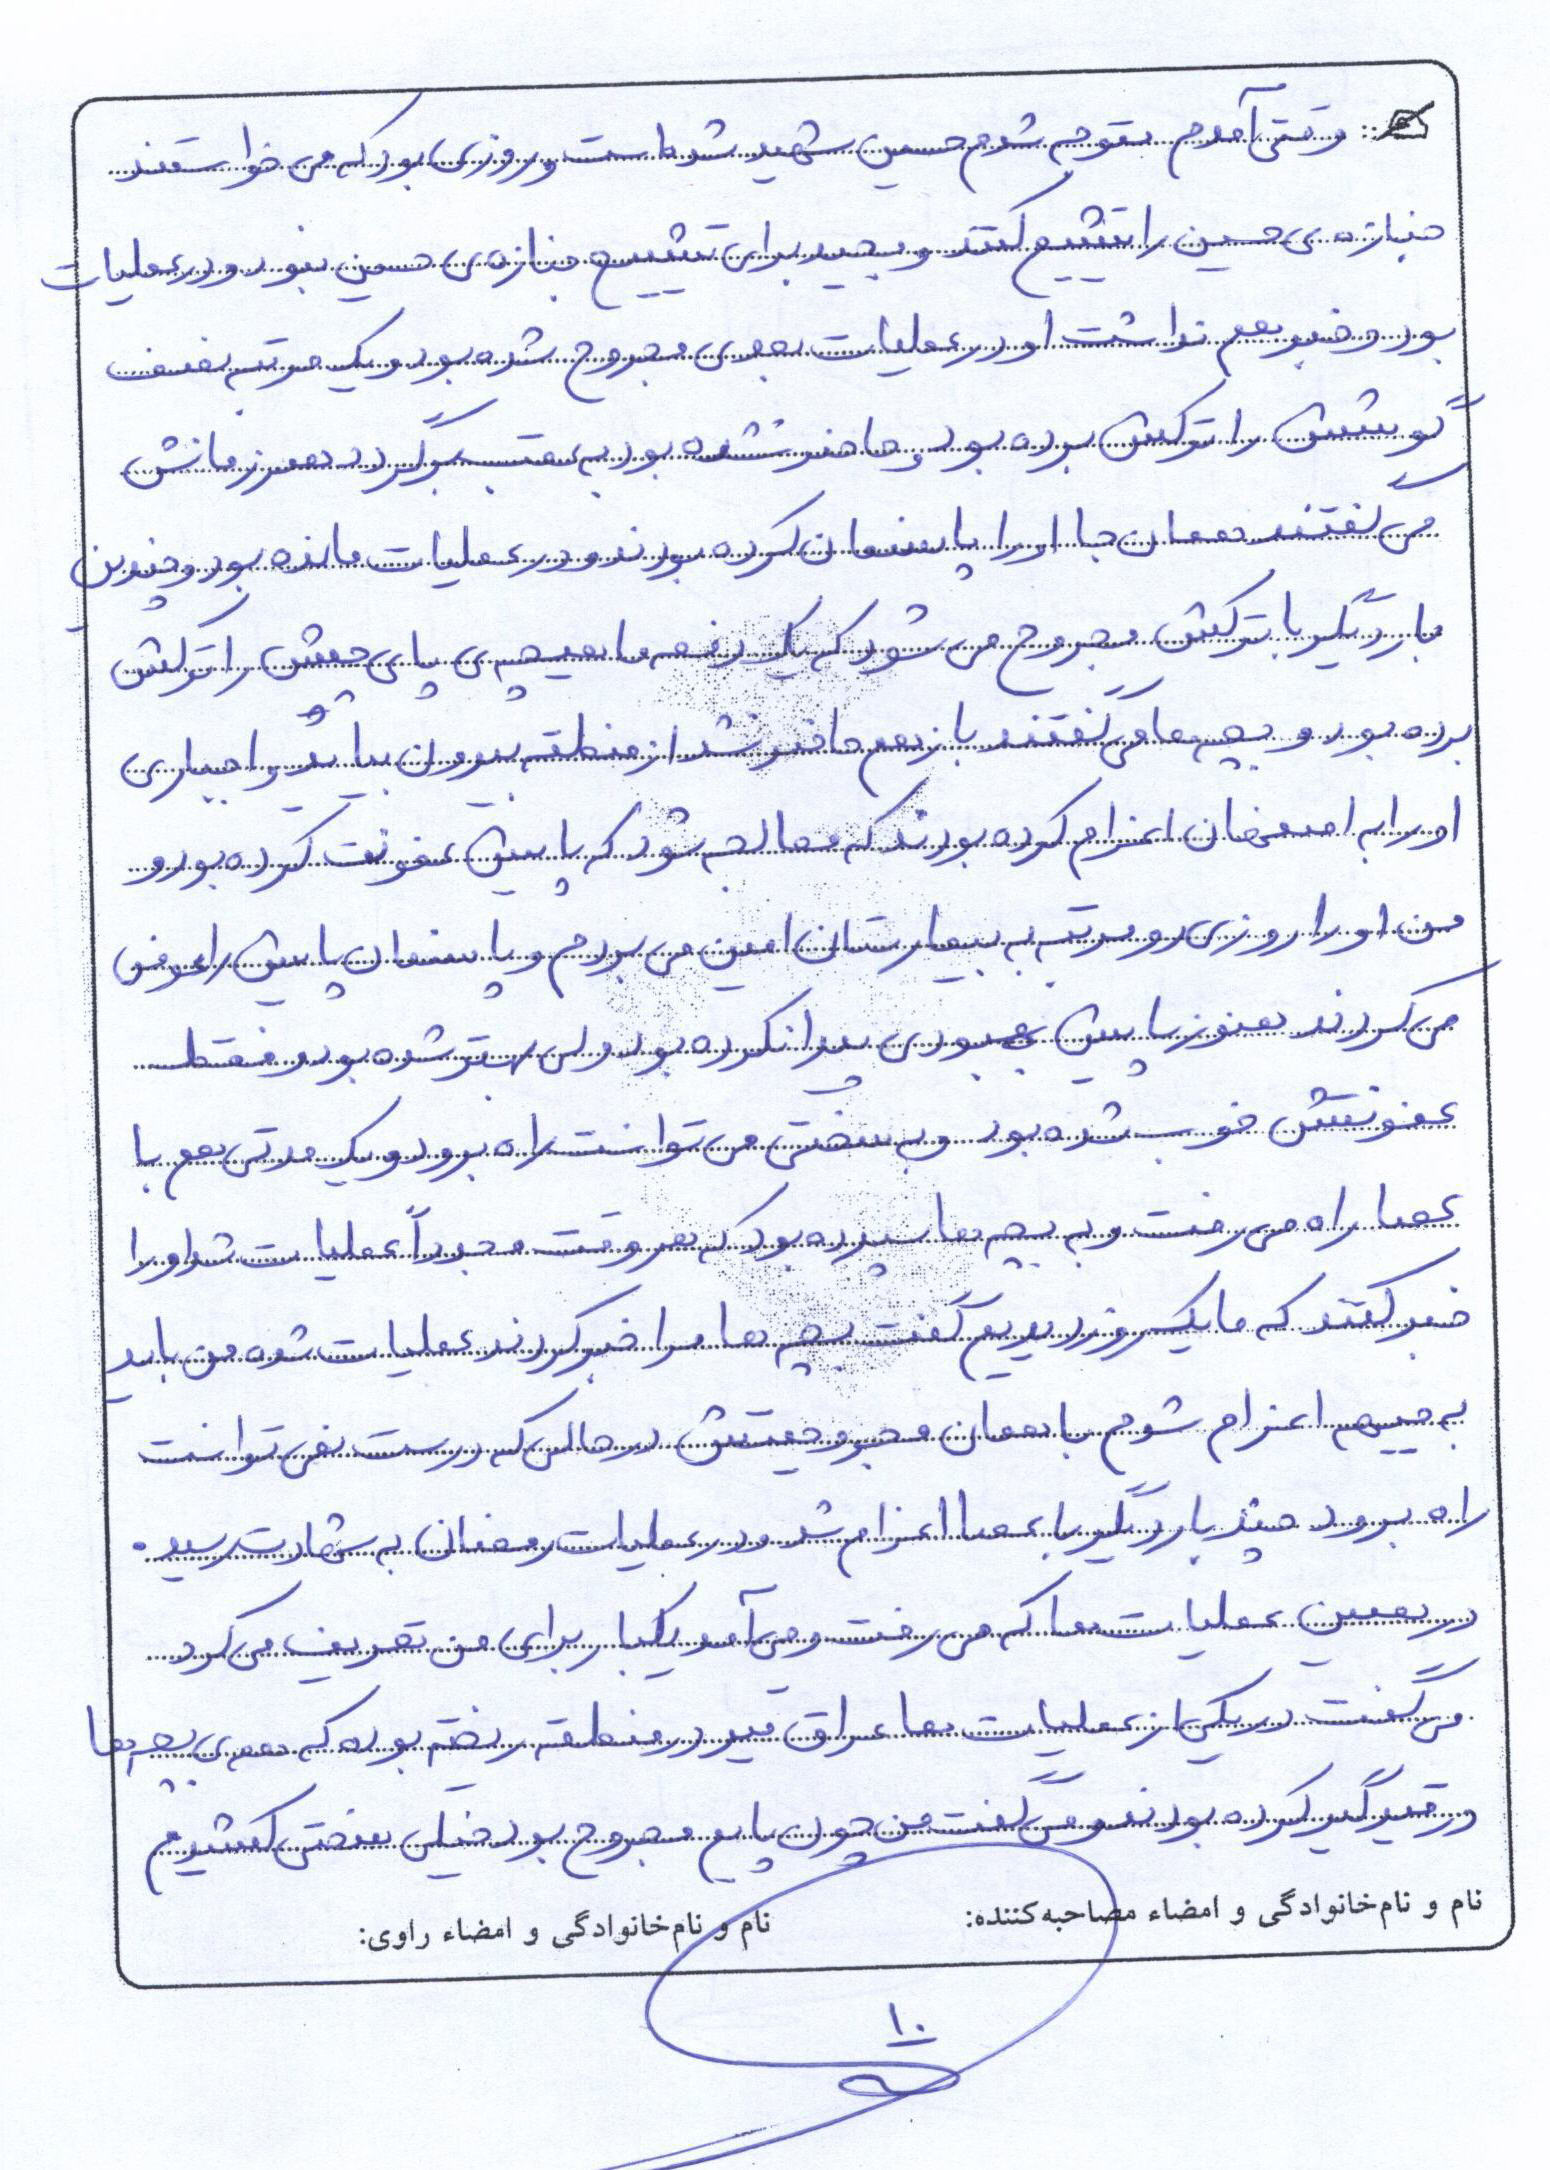 وقتی آمدم متوجه شدم حسین شهید شده است و روزی بود که می خواستند
جنازه ی حسین را تشییع کنند و مجید برای تشییع جنازه ی حسین نبود و در عملیات
بود و خبر هم نداشت او در عملیات بعدی مجروح شده بود و یک مرتبه نصف
گوشش را ترکش برده بود و حاضر نشده بود به عقب برگردد همرزمانش
می گفتند همان جا او را پانسمان کرده بودند و در عملیات مانده بود و چندین
بار دیگر با ترکش مجروح می شود که یک دفعه ماهیچه ی پای چپش را ترکش
برده بود و بچه ها می گفتند باز هم حاضر نشد از منطقه بیرون بیاید و اجباری
او را به اصفهان اعزام کرده بودند که معالجه شود که پایش عفونت کرده بود و
من او را روزی دو مرتبه به بیمارستان امین می بردم و پانسمان پایش را عوض
می کردند هنوز پایش بهبودی پیدا نکرده بود ولی بهتر شده بود فقط
عفونتش خوب شده بود و به سختی می توانست راه برود و یک مدتی هم با
عصا راه می رفت و به بچه ها سپرده بود که هر وقت مجدداً عملیات شد او را
خبر کنند که ما یک روز دیدیم گفت بچه ها مرا خبر کردند عملیات شده من باید
به جبهه اعزام شوم با همان مجروحیتش در حالی که درست نمی توانست
راه برود چند بار دیگر با عصا اعزام شد و در عملیات رمضان به شهادت رسید.
در همین عملیات ها که می رفت و می آمد یکبار برای من تعریف می کرد
می گفت در یکی از عملیات ها عراق قیر در منطقه ریخته بوده که همه ی بچه ها
در قیر گیر کرده بودند و می گفت من چون پایم مجروح بود خیلی سختی کشیدم
نام و نام‌خانوادگی و امضاء مصاحبه‌کننده: نام و نام‌خانوادگی و امضاء راوی:
۱۰